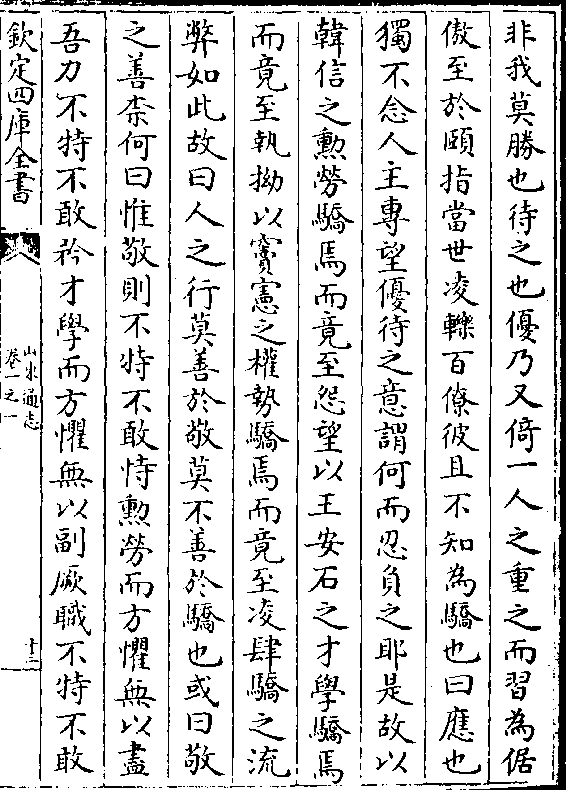 非我莫勝也待之也優乃又倚一人之重之而習為倨
傲至於頤指當世凌轢百僚彼且不知為驕也曰應也
獨不念人主專望優待之意謂何而忍負之耶是故以
韓信之勲勞驕焉而竟至怨望以王安石之才學驕焉
而竟至執拗以竇憲之權勢驕焉而竟至凌肆驕之流
弊如此故曰人之行莫善於敬莫不善於驕也或曰敬
之善柰何曰惟敬則不特不敢恃勲勞而方懼無以盡
吾力不特不敢矜才學而方懼無以副厥職不特不敢
欽定四庫全書
山東通志
卷一之一
十三